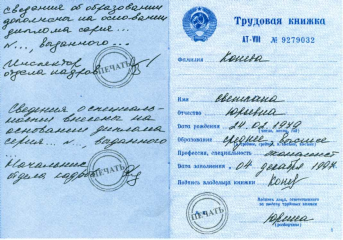 Сведения об образовании
дополнены на основании
диплома серия...
№..., выданного...
Инспектор
отдела кадров
ПЕЧАТЬ
Сведения о специаль-
ности внесены на
основании диплома
серия... №..., выданного
...
Начальник
отдела кадров
ПЕЧАТЬ
Трудовая книжка
АТ-VIII № 9279032
Фамилия Конева
Имя Светлана
Отчество Юрьевна
Дата рождения
Образование среднее
Профессия, специальность
Дата заполнения 04 декабря
Подпись владельца книжки
Подпись лица, ответственного
за выдачу трудовых книжек
ПЕЧАТЬ